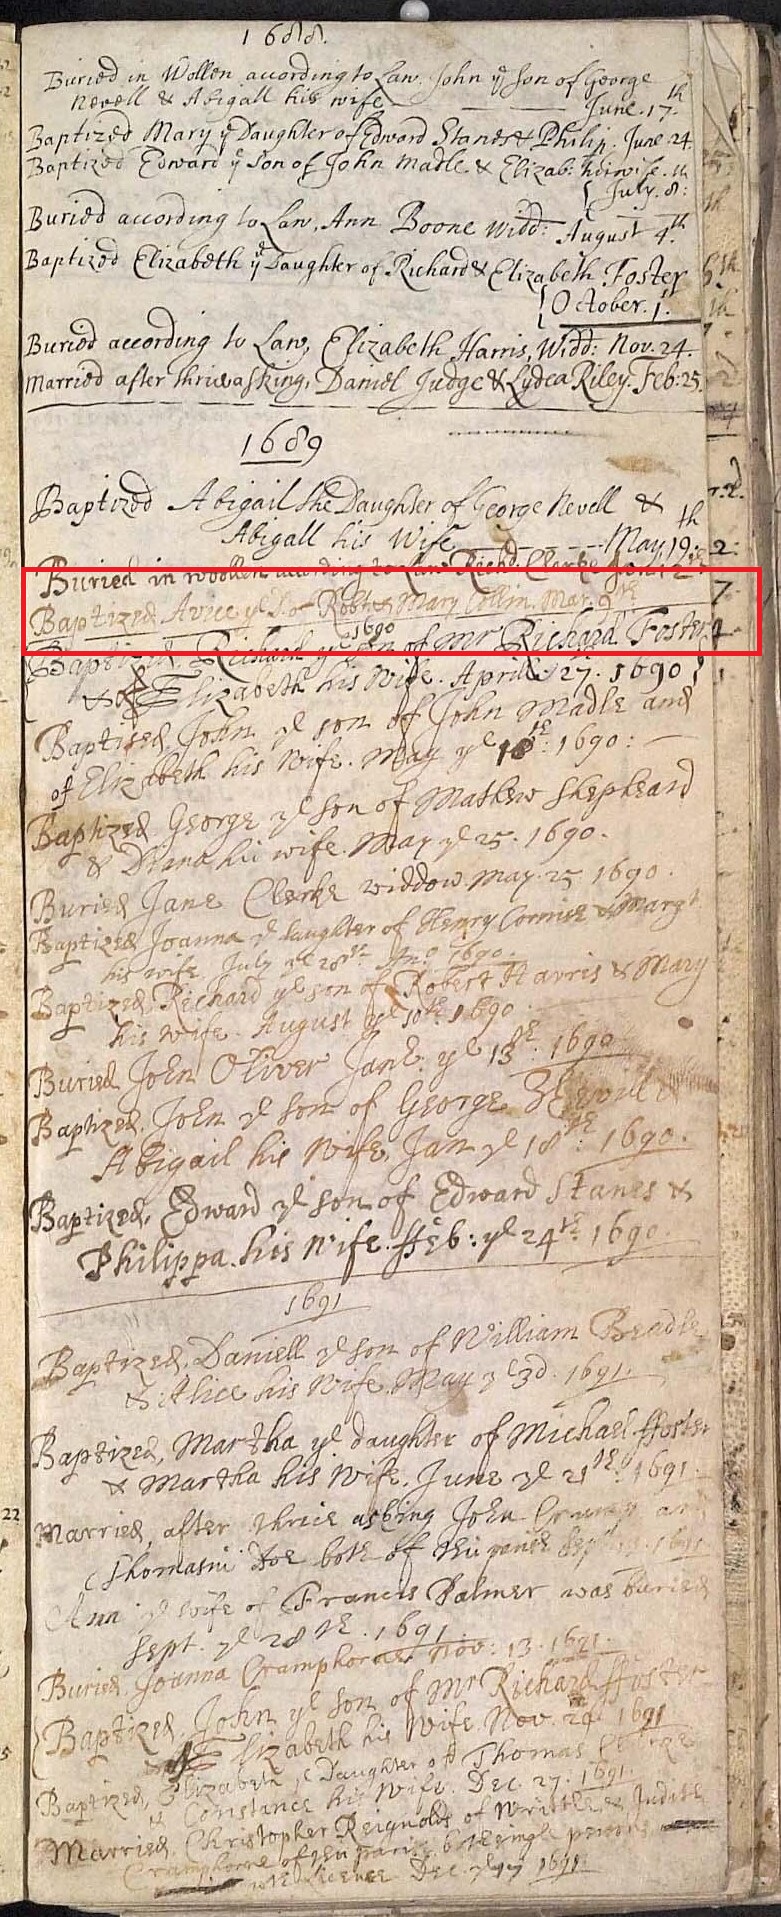 1688.
Buried in Wollen according to Law. John ye Son of George
Nevell & Abigall his wife June. 17.th
Baptized Mary ye Daughter of Edward Stanes & Philip. June. 24.
Baptized Edward ye Son of John Madle & Elizab: his wife.
July. 8:
Buried according to Law, Ann Boone Widd: August 4.th
Baptized Elizabeth ye Daughter of Richard & Elizabeth Foster
October. 1.
Buried according to Law, Elizabeth Harris, Widd: Nov. 24.
Married after thrice asking, Daniel Judge & Lydea Riley. Feb: 25.
1689
Baptized Abigail the Daughter of George Nevell &
Abigall his Wife May. 19. th
Buried in woollen according to Law Richd. Clerke
Baptized Avice ye of Robt & Mary Collin. Mar. 9th
1690
Baptized, Richard ye son of Mr Richard Foster
& Elizabeth his Wife. April. 27. 1690
Baptised, John ye son of John Madle and
of Elizabeth his Wife. May ye 18th: 1690:
Baptized. George ye son of Mathew Shepheard
& Diana his wife. May ye 25. 1690.
Buried Jane Clerke widdow. May. 25 1690.
Baptized Joanna ye daughter of Henry Cornise & Margt
his wife. July ye 28th Ano 1690.
Baptized, Richard ye son of Robert Harris & Mary
his Wife. August ye 10th. 1690
Buried John Oliver Jan: ye 13th: 1690
Baptized, John ye son of George &
Abigail his Wife, Jan ye 18th: 1690.
Baptized, Edward ye son of Edward Stanes &
Philippa. his Wife. ffeb: ye 24th. 1690.
1691
Baptized, Daniell ye son of William Beadle
& Alice his Wife. May ye 3d. 1691.
Baptized, Martha ye daughter of Michael ffoster
& Martha his Wife, June ye 21th. 1691.
Married, after thrice asking John and
Thomasin Joe both of this parish Sept. 1691
Ann ye wife of Francis Palmer was buried
Sept. ye 28th. 1691.
Buried, Joanna Cramphorne Nov: 13. 1691.
Baptized, John ye son of Mr Richard ffoster
& Elizabeth his Wife. Nov. 24 1691
Baptized, Elizabeth ye Daughter of Thomas
& Constance his Wife. Dec 27. 1691.
Married, Christopher Reignolds of Writtle & Judith
Cramphorne of this parish both single persons
with Licence Dec ye 1691.